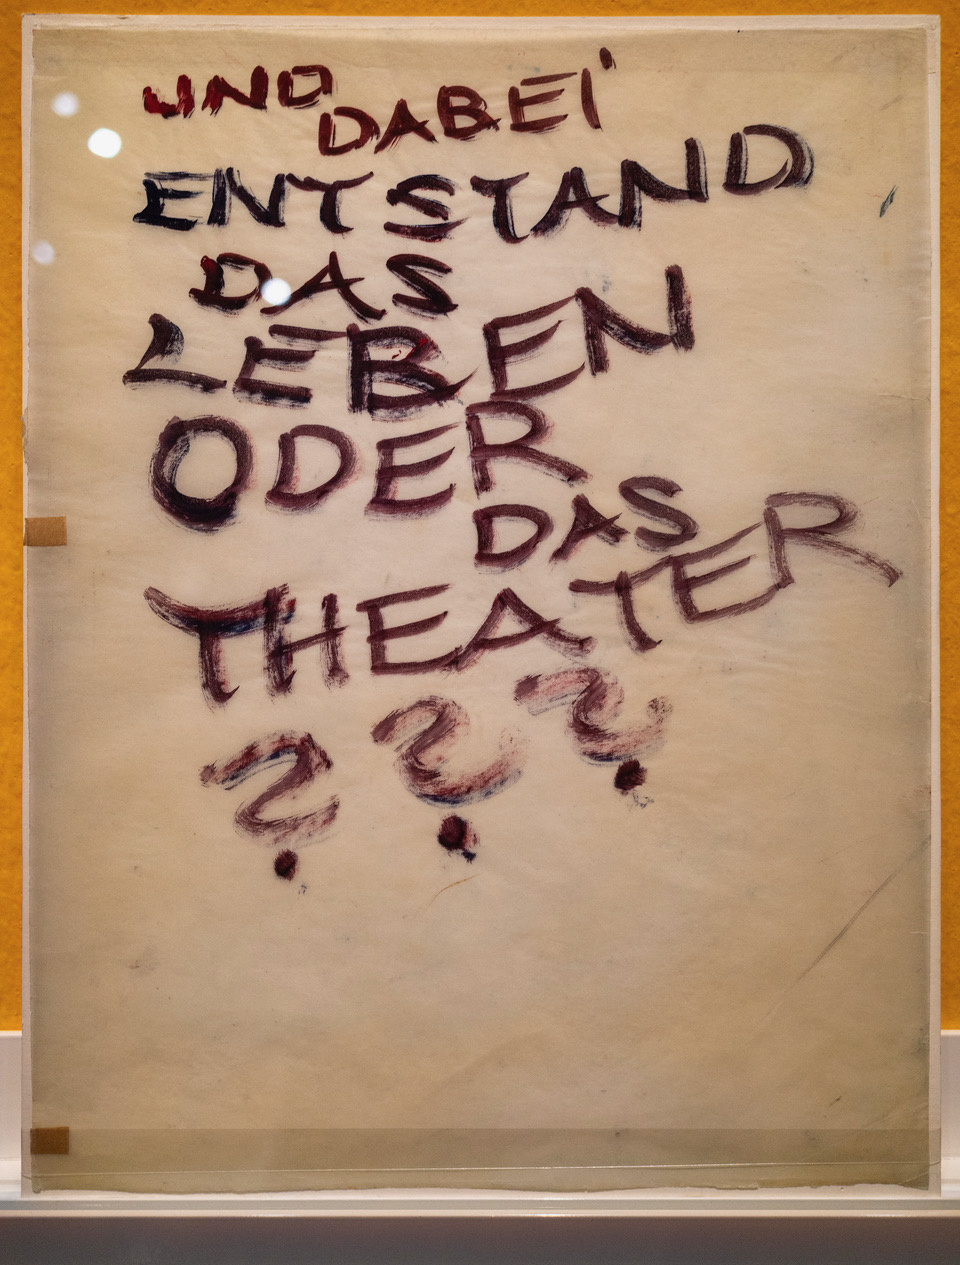 UND DABEI
ENTSTAND
DAS
LEBEN
ODER
DAS
THEATER
???